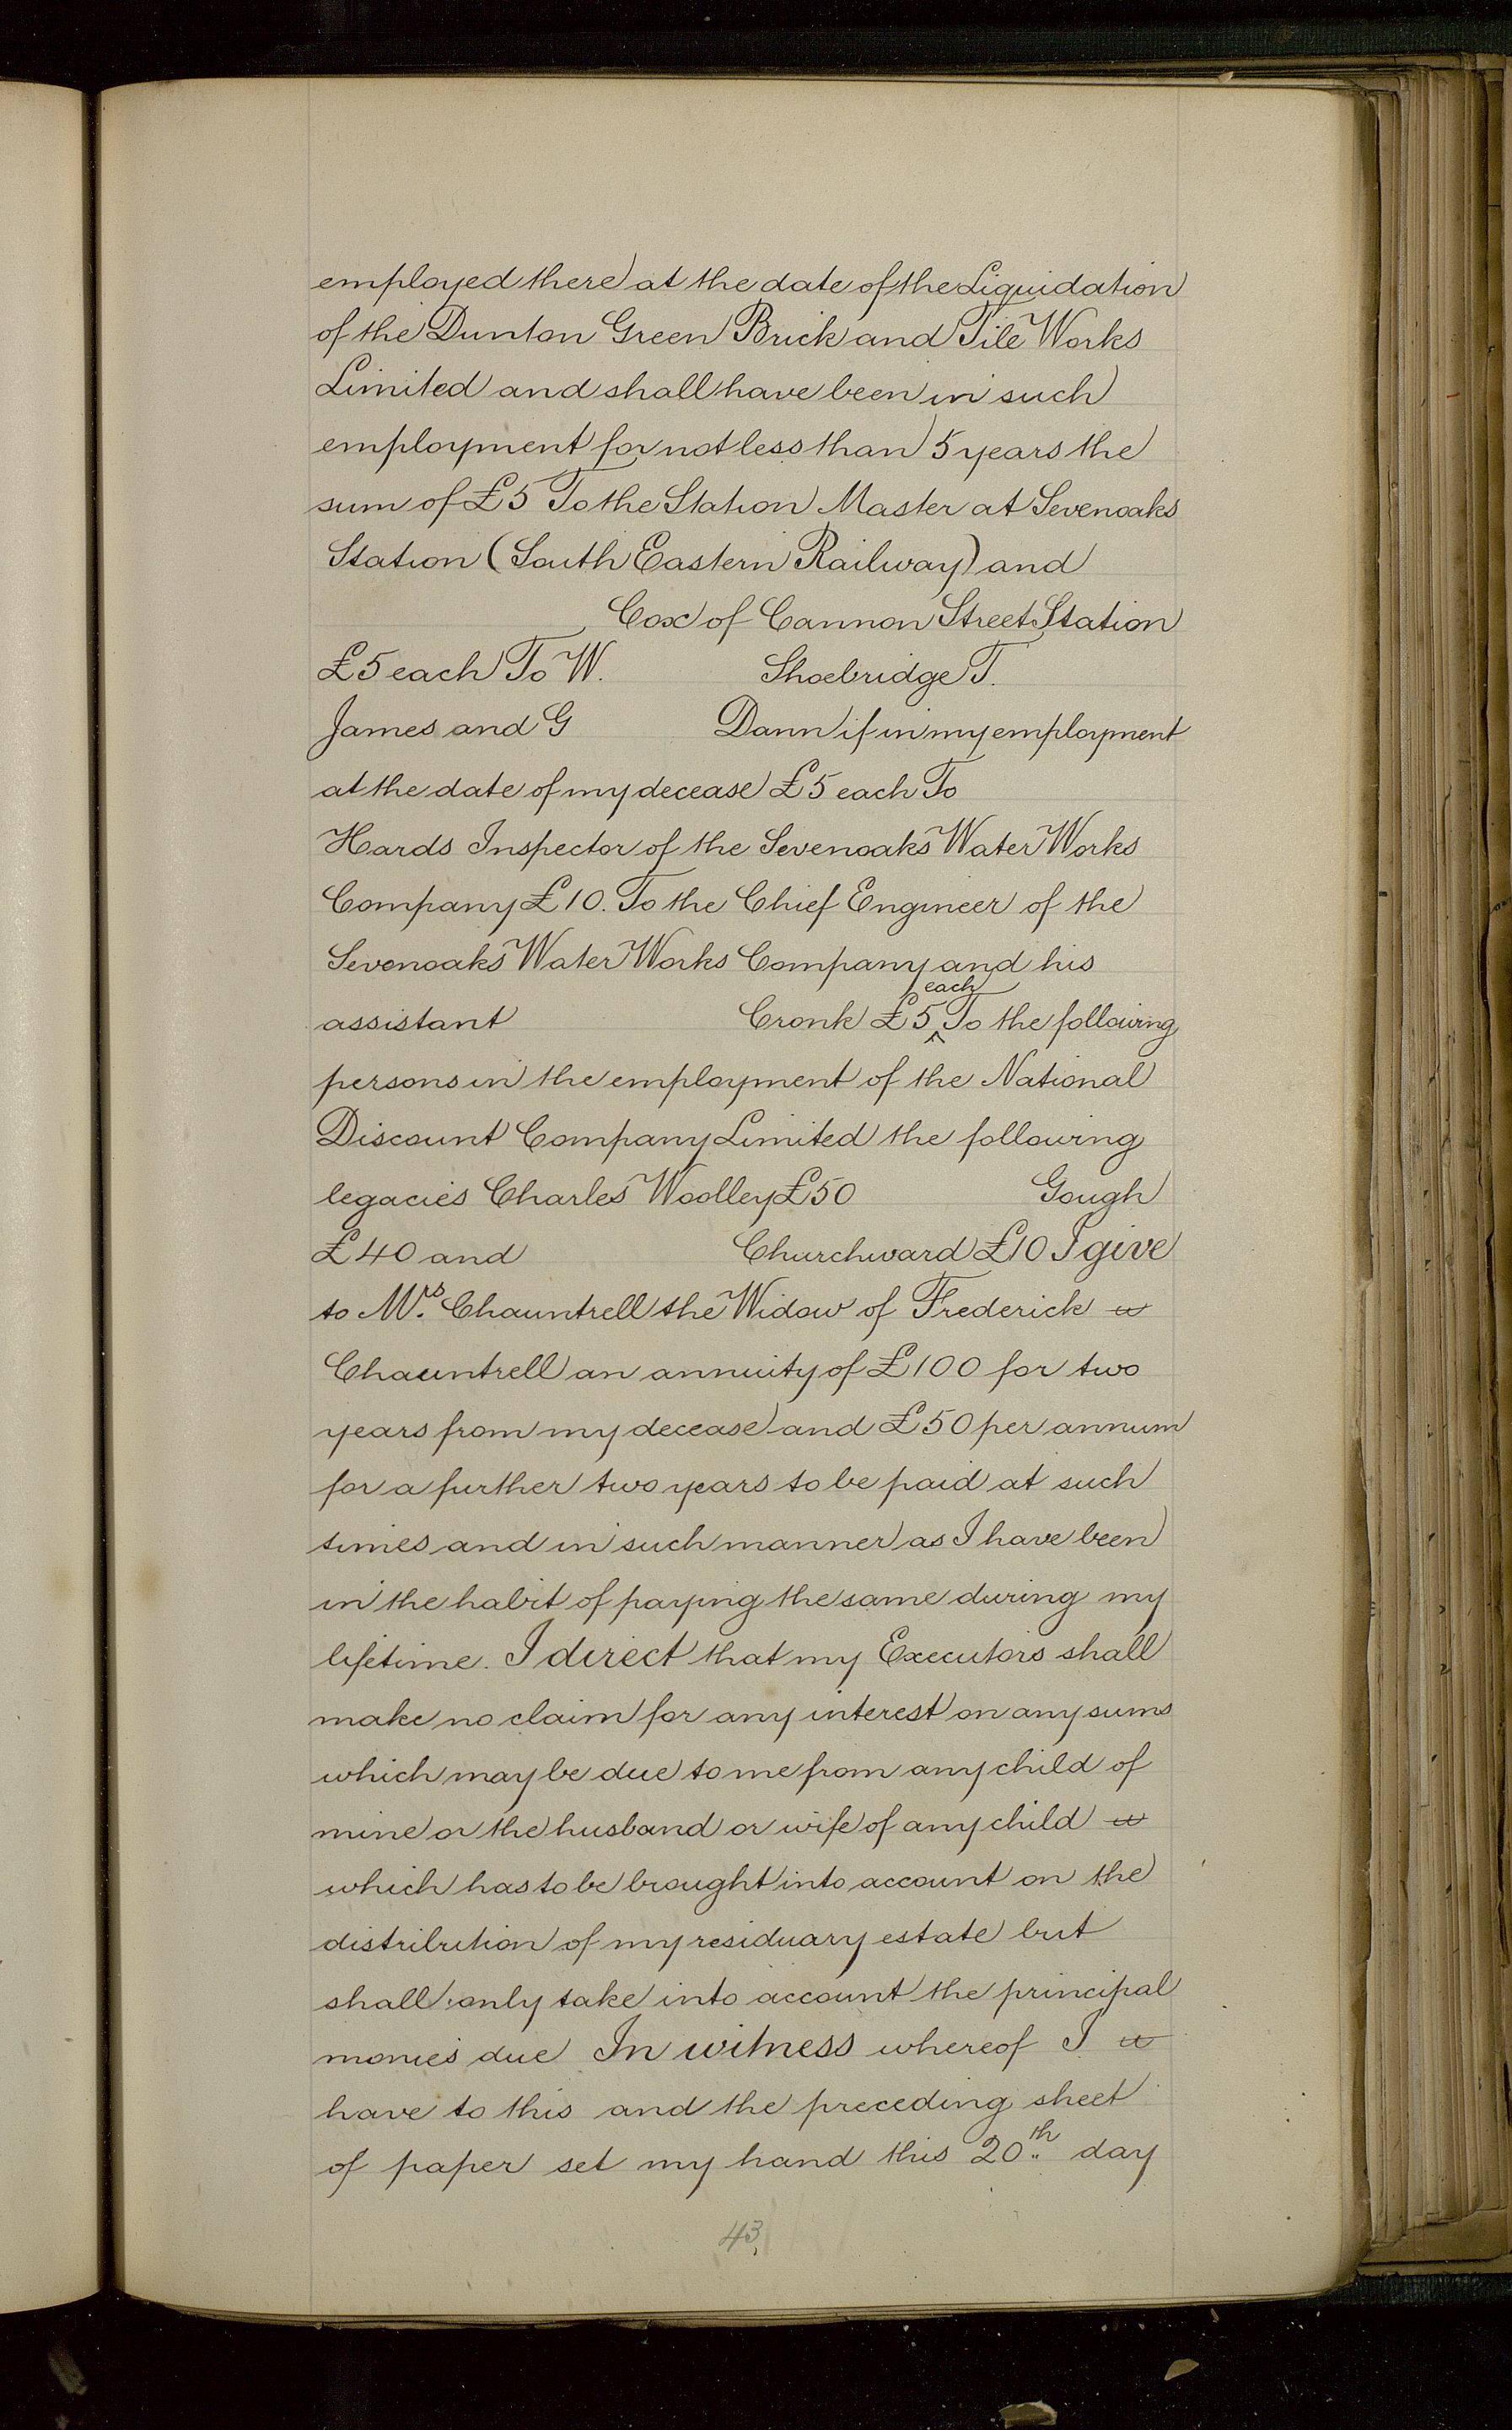 employed there at the date of the Liquidation
of the Dunton Green Brick and Tile Works
Limited and shall have been in such
employment for not less than 5 years the
sum of £5 To the Station Master at Sevenoaks
Station (South Eastern Railway) and
Cox of Cannon Street Station
£5 each To W. Shoebridge T.
James and G Dann if in my employment
at the date of my decease £5 each To
Hards Inspector of the Sevenoaks Water Works
Company £10. To the Chief Engineer of the
Sevenoaks Water Works Company and his
assistant Cronk £5 each To the following
persons in the employment of the National
Discount Company Limited the following
legacies Charles Woolley £50 Gough
£40 and Churchward £10 I give
to Mrs. Chauntrell the Widow of Frederick
Chauntrell an annuity of £100 for two
years from my decease and £50 per annum
for a further two years to be paid at such
times and in such manner as I have been
in the habit of paying the same during my
lifetime. I direct that my Executors shall
make no claim for any interest on any sums
which may be due to me from any child of
mine or the husband or wife of any child
which has to be brought into account on the
distribution of my residuary estate but
shall only take into account the principal
monies due In witness whereof I
have to this and the preceding sheet
of paper set my hand this 20th day
43